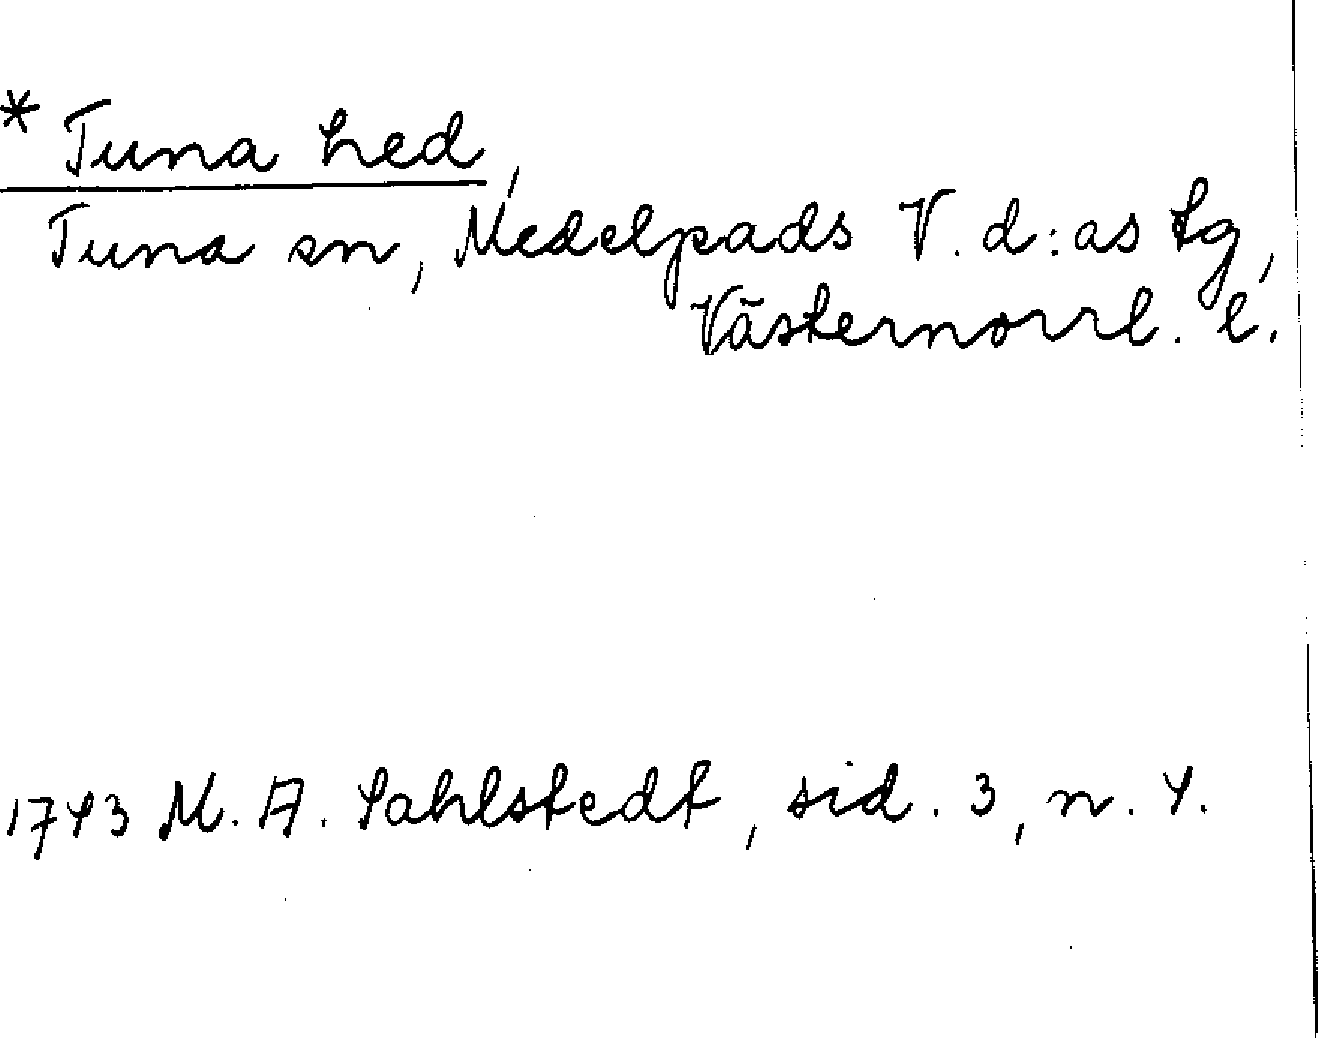 * Tuna hed,
Tuna sn, Medelpads V. d:as tg,
Västernorrl. l.
1743 M. A. Sahlstedt, sid. 3, n. 4.